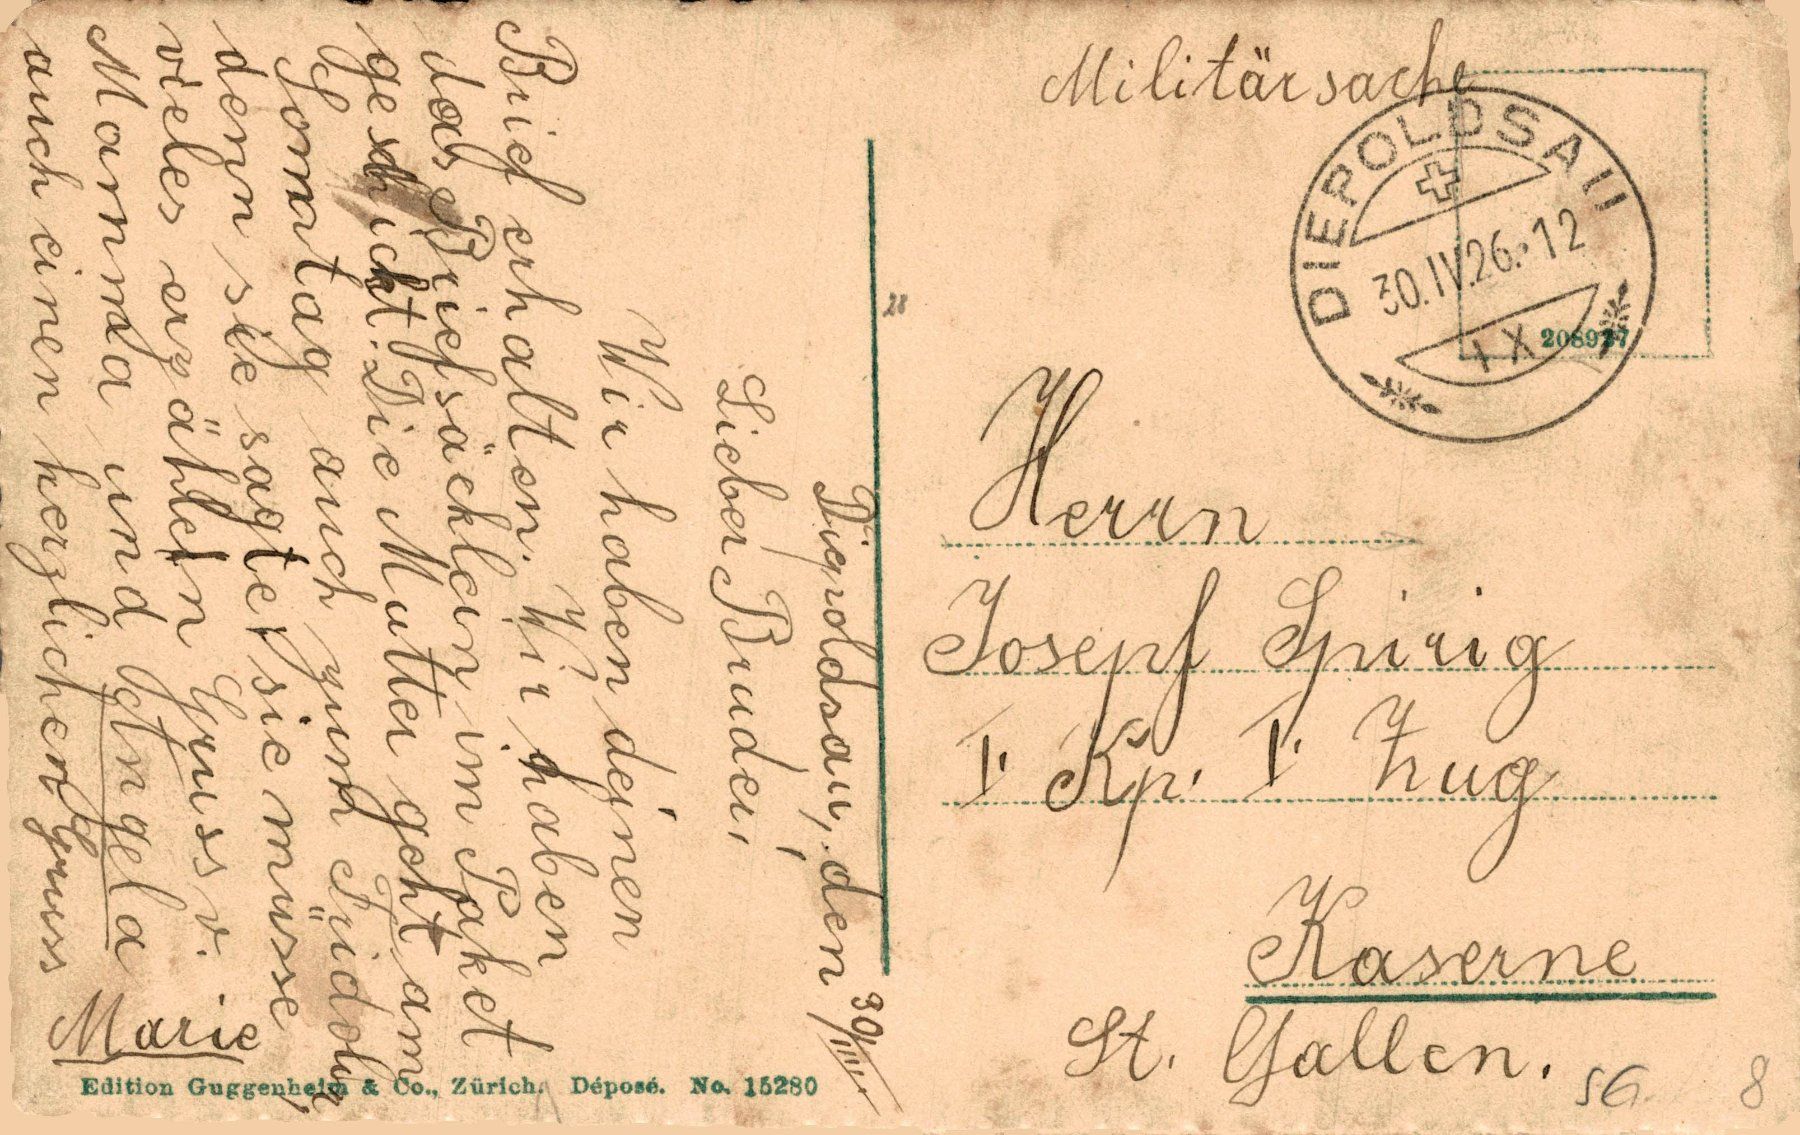 Militärsache
DIEPOLDSAU
30.IV.26.-12
IX
Herrn
Josepf Spirig
I. Kp. I. Zug
Kaserne
St. Gallen.
SG 8
28
Dipoldsau, den 30/IIII.
Lieber Bruder,
Wir haben deinen
Brief erhalten. Wir haben
das Briefsäcklein im Paket
geschickt. Die Mutter geht am
Sonntag auch zum Fridolin,
denn sie sagte, sie müsse
vieles erzählen Gruss v.
Mamma und Angela
auch einen herzlichen Gruss
Marie
Edition Guggenheim & Co., Zürich. Déposé. No. 15280